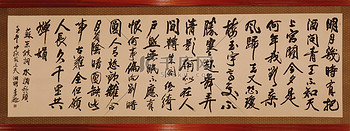 明月幾時有把
酒問青天不知天
上宮闕今夕是
何年我欲乘
風歸去又恐瓊
樓玉宇高處不
勝寒起舞弄
清影何似在人
間轉朱閣低綺
戶照無眠不應有
恨何事偏向別時
圓人有悲歡離合
月有陰晴圓缺此
事古難全但願
人長久千里共
嬋娟
蘇軾詞水調歌頭